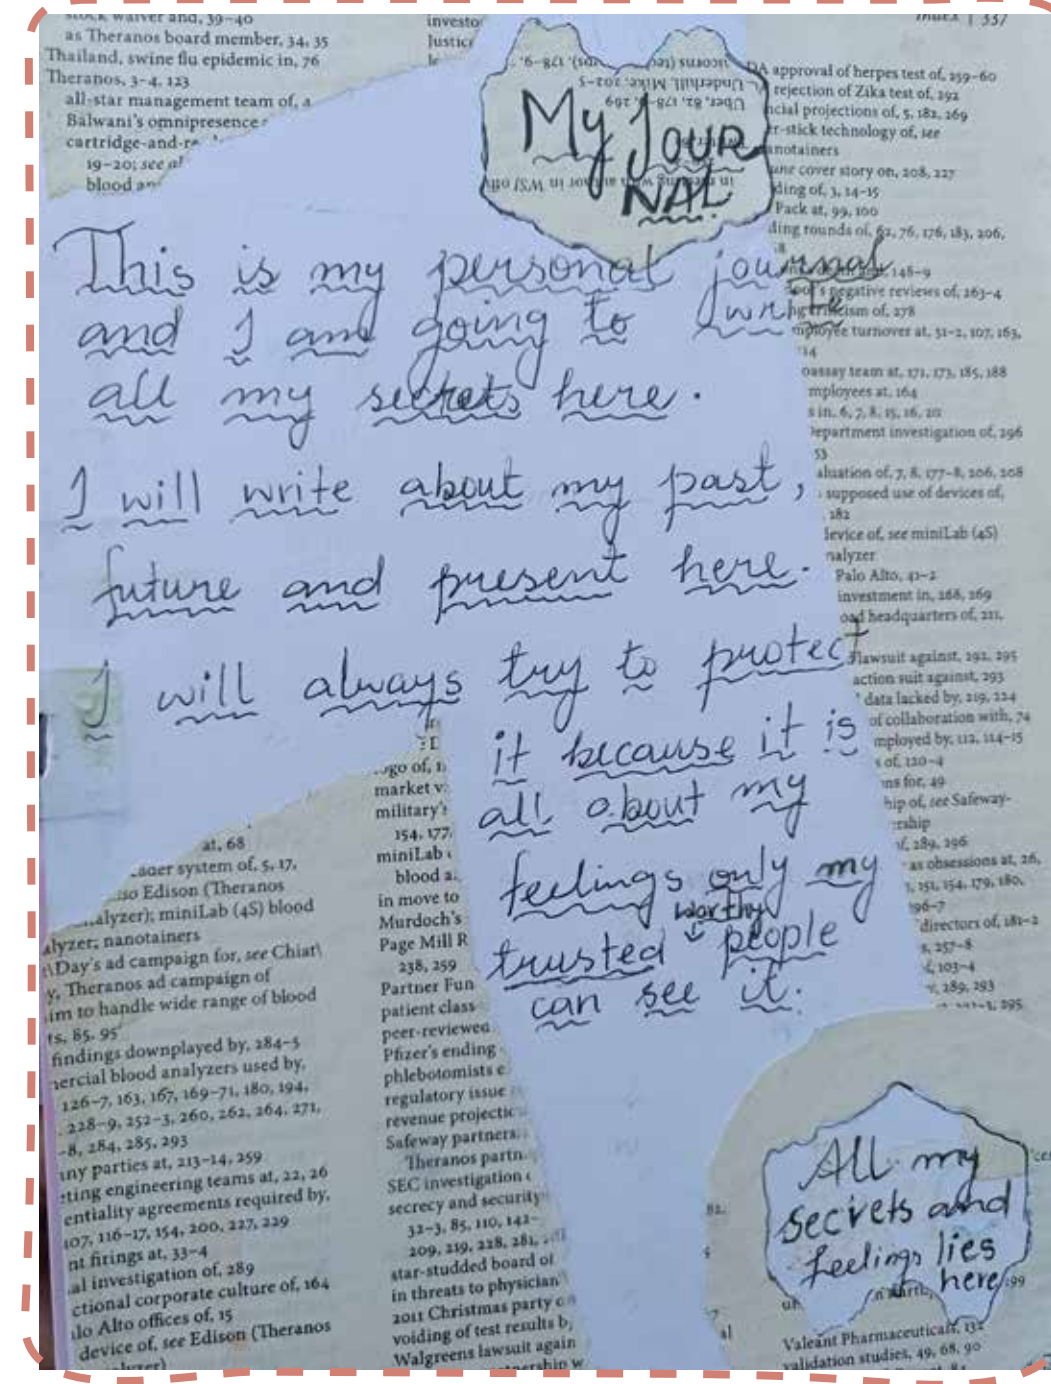 stock waiver and, 39–40
as Theranos board member, 34, 35
Thailand, swine flu epidemic in, 76
Theranos, 3–4, 123
all-star management team of, a
Balwin's omnipresence
cartridge-and-re
19–20; see al
blood an
investo
Justice
Index | 337
My Jour
NAL.
Underhill, Mike, 202–5
Uber, 82, 178–9, 269
DA approval of herpes test of, 259–60
rejection of Zika test of, 292
ncial projections of, 5, 182, 269
r-stick technology of, see
anotainers
une cover story on, 208, 227
ding of, 3, 14–15
Pack at, 99, 100
ding rounds of, 62, 76, 176, 183, 206,
148–9
negative reviews of, 263–4
cism of, 278
mployee turnover at, 31–2, 107, 163,
14
oassay team at, 171, 173, 185, 188
mployees at, 164
s in, 6, 7, 8, 15, 16, 20
Department investigation of, 296
53
aluation of, 7, 8, 177–8, 206, 208
supposed use of devices of,
182
device of, see miniLab (4S)
nalyzer
Palo Alto, 41–2
investment in, 268, 269
oad headquarters of, 211,
lawsuit against, 292, 295
action suit against, 293
data lacked by, 219, 224
of collaboration with, 74
mployed by, 112, 114–15
s of, 120–4
ns for, 49
hip of, see Safeway-
rship
of, 289, 296
as obsessions at, 26,
, 151, 154, 179, 180,
96–7
directors of, 181–2
s, 257–8
, 103–4
, 289, 293
295
This is my personal journal
and I am going to write
all my secrets here.
I will write about my past,
future and present here.
I will always try to protect
it because it is
all about my
feelings only my
worthy
trusted people
can see it.
at, 68
ader system of, 5, 17,
so Edison (Theranos
nalyzer); miniLab (4S) blood
alyzer; nanotainers
t\Day's ad campaign for, see Chiat\
y, Theranos ad campaign of
im to handle wide range of blood
ts, 85, 95
findings downplayed by, 284–5
ercial blood analyzers used by,
126–7, 163, 167, 169–71, 180, 194,
228–9, 252–3, 260, 262, 264, 271,
–8, 284, 285, 293
any parties at, 213–14, 259
ting engineering teams at, 22, 26
entiality agreements required by,
107, 116–17, 154, 200, 227, 229
nt firings at, 33–4
al investigation of, 289
ctional corporate culture of, 164
lo Alto offices of, 15
device of, see Edison (Theranos
alyzer)
go of, 1
market v
military's
154, 177,
miniLab
blood a
in move to
Murdoch's
Page Mill R
238, 259
Partner Fun
patient class
peer-reviewed
Pfizer's ending
phlebotomists e
regulatory issue
revenue projectio
Safeway partners
Theranos partn
SEC investigation
secrecy and security
32–3, 85, 110, 142–
209, 219, 228, 281,
star-studded board of
in threats to physician
2011 Christmas party
voiding of test results b
Walgreens lawsuit again
nership w
All my
secrets and
feelings lies
here
Valeant Pharmaceuticals, 132
validation studies, 49, 68, 90